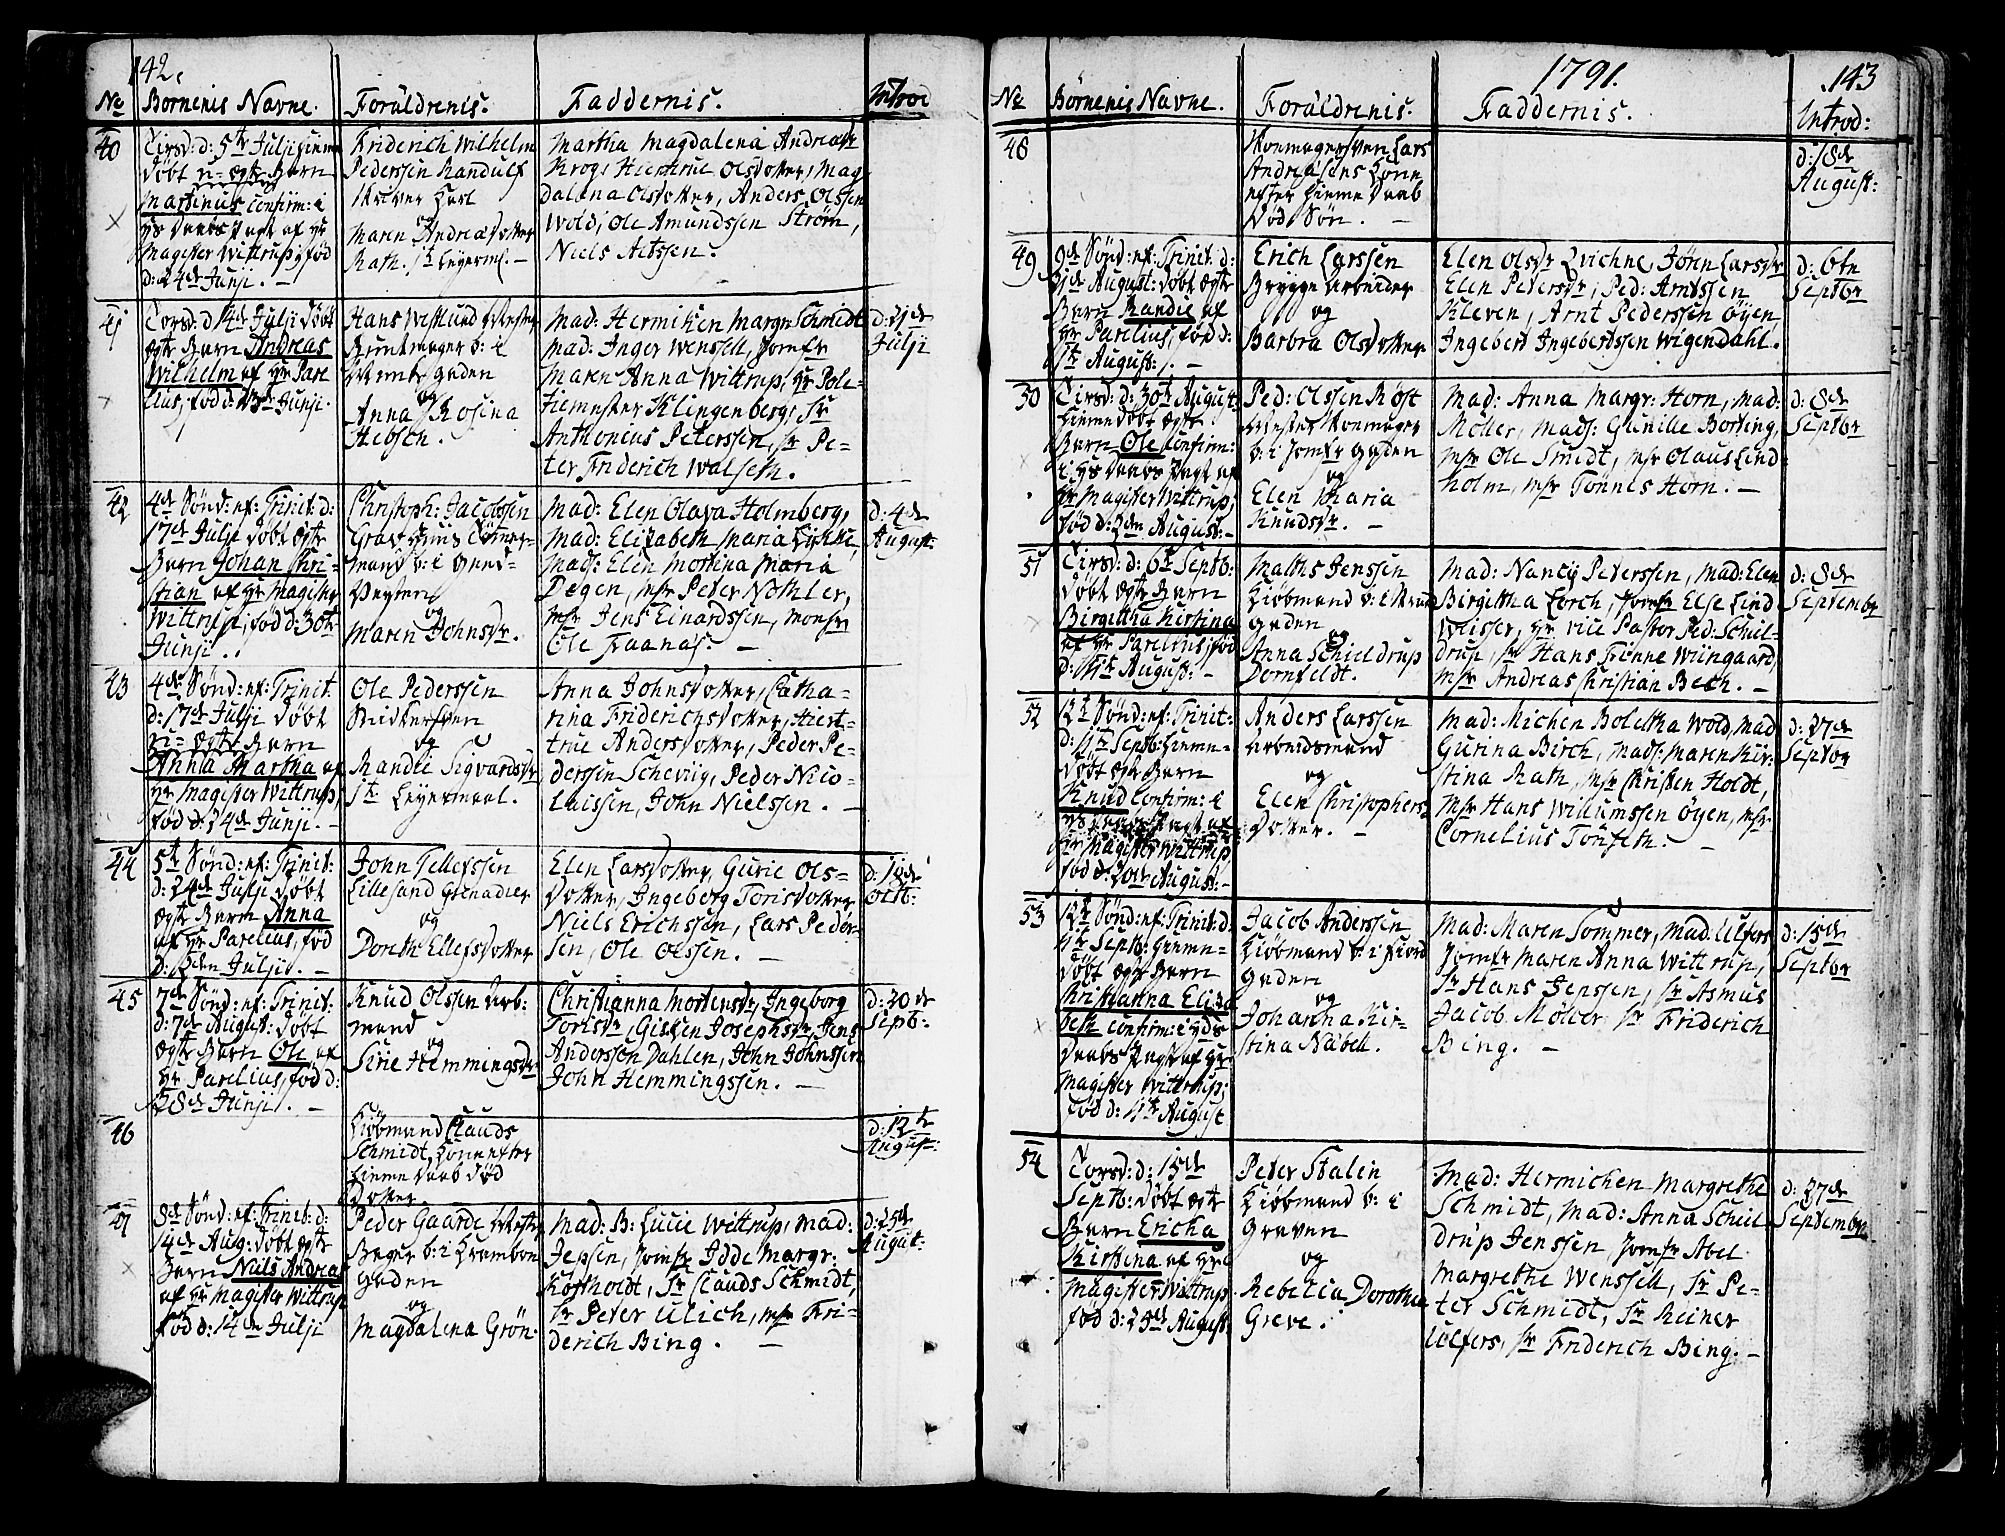 142.
No Bornenis Navne. Forældrenis. Faddernis. Introd
40
Tirsd: d: 5te Julji hieme
døbt u=ægte Barn
Martinus confirm: i
af Hr
Magister Wittrup, fød
d: 24de Junji. –
Friderich Wilhelm
Pederssen Randulf
og
Maren Andreædotter
Rath. 1te Leyerm. –
Martha Magdalena
Krog, Hiertrue Olsdotter, Mag
dalena Olsdotter, Anders Olssen
Wold, Ole Amundssen Strøm,
Niels
41
Torsd: d: 14de Julji døbt
ægte Barn Andreas
Wilhelm af Hr Pare
lius, fød d: 13de Junji.
Hans Westlund Mester
Buntmager b: i
gaden
og
Anna Rosina
Hebsch.
Mad: Hermiken Margr: Schmidt
Mad: Inger Wensell, Jomfr
Maren Anna Wittrup, Hr Pole-
tiemester Klingenberg, Sr
Anthonius Peterssen, Sr Pe-
ter Friderich Walseth.
d: 21de
Julji
42
4de Sønd: ef: Trinit: d:
17de Julji døbt ægte
Barn Johan Chri-
stian af Hr Magister
Wittrup, fød d: 30te
Junji.
Christoph: Jacobssen
mand b: i
og
Maren Johnsdr.
Mad: Elen Olava Holmberg,
Mad: Elizabeth Maria Lykke
Mad: Elen Mortina Maria
Degen, Msr Peter Nøhler,
Msr Jens Einardssen, Monsr
Ole Faanas. –
d: 4de
August:
43
4de Sønd: ef: Trinit.
d: 17de Julji døbt
u=ægte Barn
Anna Martha af
Hr Magister Wittrup
fød d: 24de Junji. –
Ole Pederssen
og
Randi Sigvardsdr
1te Leyermaal.
Anna Johnsdotter, Catha-
rina Friderichsdotter, Hiert-
true Andersdotter, Peder Pe-
derssen Scheviig, Peder Nico-
laissen, John Nielssen. –
44
5te Sønd: ef: Trinit:
d: 24de Julji døbt
ægte Barn Anna
af Hr Parelius, fød
d: 12den Julji. –
John Tellefssen
Lillesand Grenadier
og
Doreth Ellefsdotter
Elen Larsdotter, Gurie Ols-
dotter, Ingeberg Torisdotter
Niels Erichssen, Lars Peder-
sen, Ole Olssen. –
d: 18de
octb:
45
7de Sønd: ef: Trinit:
d: 7de August: døbt
ægte Barn Ole af
Hr Parelius, fød d:
28de Junji. –
Knud Olssen Arb:
mand
og
Sirie Hemmingsdr
Christianna Mortensdr, Ingeborg
Torisdr, Gisken Josephsdr, Jens
Anderssøn Dahlen, John Johnssen
John Hemmingssen. –
d: 20de
Septb:
46
Kiøbmand Clauds
Schmidt Kone efter
hieme daab død
Dotter.
d: 12te
August:
47
8de Sønd: ef: Trinit: d:
14de Aug: døbt ægte
Barn Niels Andreas
af Hr Magister Wittrup
fød d: 14de Julji
Peder Gaarde Mester
Bager b: i Krambod
gaden
og
Magdalena Grøn.
Mad: B: Lucie Wittrup, Mad:
Jepsen, Jomfr Idde Margr.
Kortholdt, Sr Clauds Schmidt,
Sr Peter Ulich, Msr Fri-
derich Bing. –
d: 25de
August:
1791.
143
No Børnenis Navne. Forældrenis. Faddernis. Introd:
48
Skomagersven Lars
Andreæsens Kone
efter hieme daab
død Søn. –
d: 18de
August:
49
9de Sønd: ef: Trinit. d:
21de August: døbt ægte
Barn Randie af
Hr Parelius, fød d:
1te August. –
Erich Larssen
Brygge Arbeider
og
Barbra Olsdotter
Elen Olsdr Qvichne, Jørn Larsdr
Elen Petersdr, Ped: Arntssen
Kleven, Arnt Pederssen Øyen,
Ingebert Ingebertssen Wigendahl.
d: 6te
Septbr
50
Tirsd: d: 30te August
hieme døbt ægte
Barn Ole confirm:
i af
Hr Magister Wittrup,
fød d: 2den August: –
Ped: Olssen Røst
Mester Skomager
b: i Jomfr gaden
og
Elen Maria
Knudsdr. –
Mad: Anna Margr: Horn, Mad:
Möller, Mad: Gunilie Borting,
Msr Ole Smidt, Msr Olaus Lind-
holm, Msr Tønnes Horn. –
d: 8de
Septbr
51
Tirsd: d: 6te Septb:
døbt ægte Barn
Birgitha Kirstina
af Hr Parelius, fød
d: 11te August: –
Maths Jenssen
Kiøbmand b: i
gaden
og
Anna Schieldrup
Dornfeldt.
Mad: Nancy Peterssen, Mad: Elen
Birgitha Lorch, Jomfr Else Lind
Weisser, Hr vice Pastor Ped: Schiel-
drup, Sr Hans Trönne Wiingaard,
Msr Andreas Christian Beck. –
d: 8de
Septembr
52
12te Sønd: ef: Trinit:
d: 11te Septb: hieme-
døbt ægte Barn
Knud confirm: i
af
Hr Magister Wittrup
fød d: 20de August: –
Anders Larssen
Arbeidsmand
og
Elen Christophers
dotter. –
Mad: Michen Boletha Wold, Mad
Gurina Birch, Mad: Maren Kir-
stina Rath, Msr Christen Holdt,
Msr Hans Willumssen Øyen, Msr
Cornelius Tonseth. –
d: 27de
Septbr
53
12te Sønd: ef: Trinit: d:
11te Septb: hieme-
døbt ægte Barn
Christianna Eliza
beth confirm: i
af Hr
Magister Wittrup,
fød d: 11te August
Jacob Anderssen
Kiøbmand b: i Fiord
gaden
og
Johanna Kir-
stina Nabell.
Mad: Maren Sommer, Mad: Ulfers
Jomfr Maren Anna Wittrup,
Sr Hans Jenssen, Sr Asmus
Jacob Möller, Sr Friderich
Bing. –
d: 15de
Septbr
54
Torsd: d: 15de
Septb: døbt ægte
Barn Ericha
Kirstina af Hr
Magister Wittrup
fød d: 25de August
Peter Stalin
Kiøbmand b: i
Graven
og
Rebecca Dorothea
Greve.
Mad: Hermichen Margrethe
Schmidt, Mad: Anna Schiel
drup Jenssen, Jomfr Abel
Margrethe Wensell, Sr Pe-
ter Schmidt, Sr Reiner
Ulfers, Sr Friderich Bing. –
d: 27de
Septembr